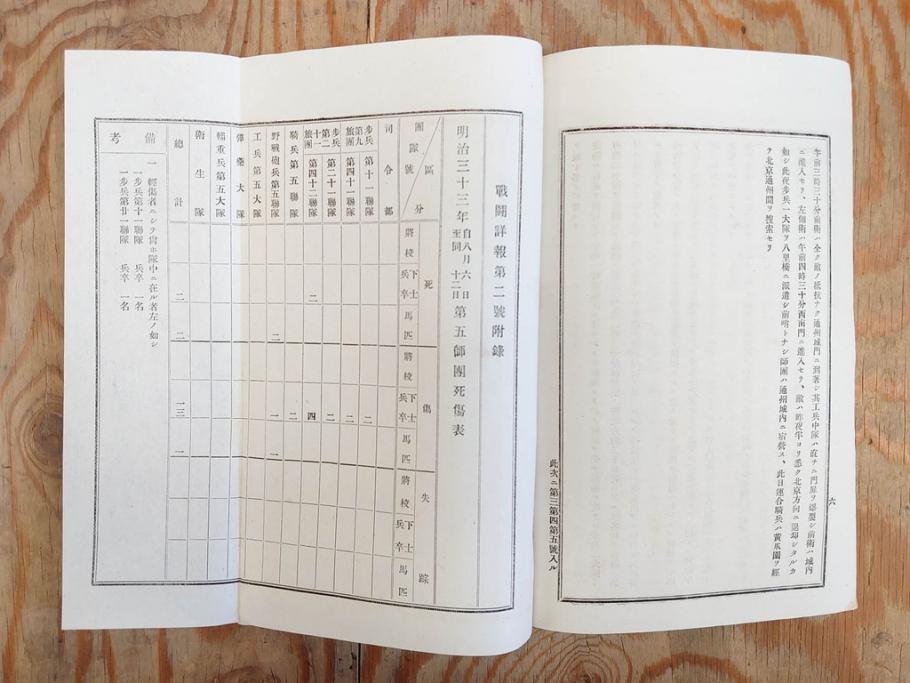 午前三時三十分前衛ハ全ク敵ノ抵抗ナク通州城門ニ到著シ其工兵中隊ハ直チニ門扉ヲ爆裂シ前衛ハ城內
ニ進入セリ、左側衛ハ午前四時三十分西南門ニ進入セリ、敵ハ昨夜半ヨリ悉ク北京方向ニ退却シタルカ
如シ此夜步兵一大隊ヲ八里橋ニ派遣シ前哨トナシ師團ハ通州城內ニ宿營ス、此日連合騎兵ハ黃瓜園ヲ經
テ北京通州間ヲ搜索セリ
六
此次ニ第三第四第五號入ル
戰鬪詳報第二號附錄
明治三十三年自八月六日至同十二日第五師團死傷表
團隊號 區分 死 傷 失踪
將校 下士兵卒 馬匹 將校 下士兵卒 馬匹 將校 下士兵卒 馬匹
司令部
步兵第九旅團 第十一聯隊 二
第四十一聯隊 二
步兵第二十一旅團 第二十一聯隊 二
第四十二聯隊 二 四
騎兵第五聯隊 二
野戰砲兵第五聯隊 二 一 一
工兵第五大隊
彈藥大隊
輜重兵第五大隊
衛生隊
總計 二 二 一三 一
備考
一 輕傷者ニシテ尙ホ隊中ニ在ル者左ノ如シ
一步兵第十一聯隊 兵卒 一名
一步兵第廿一聯隊 兵卒 一名